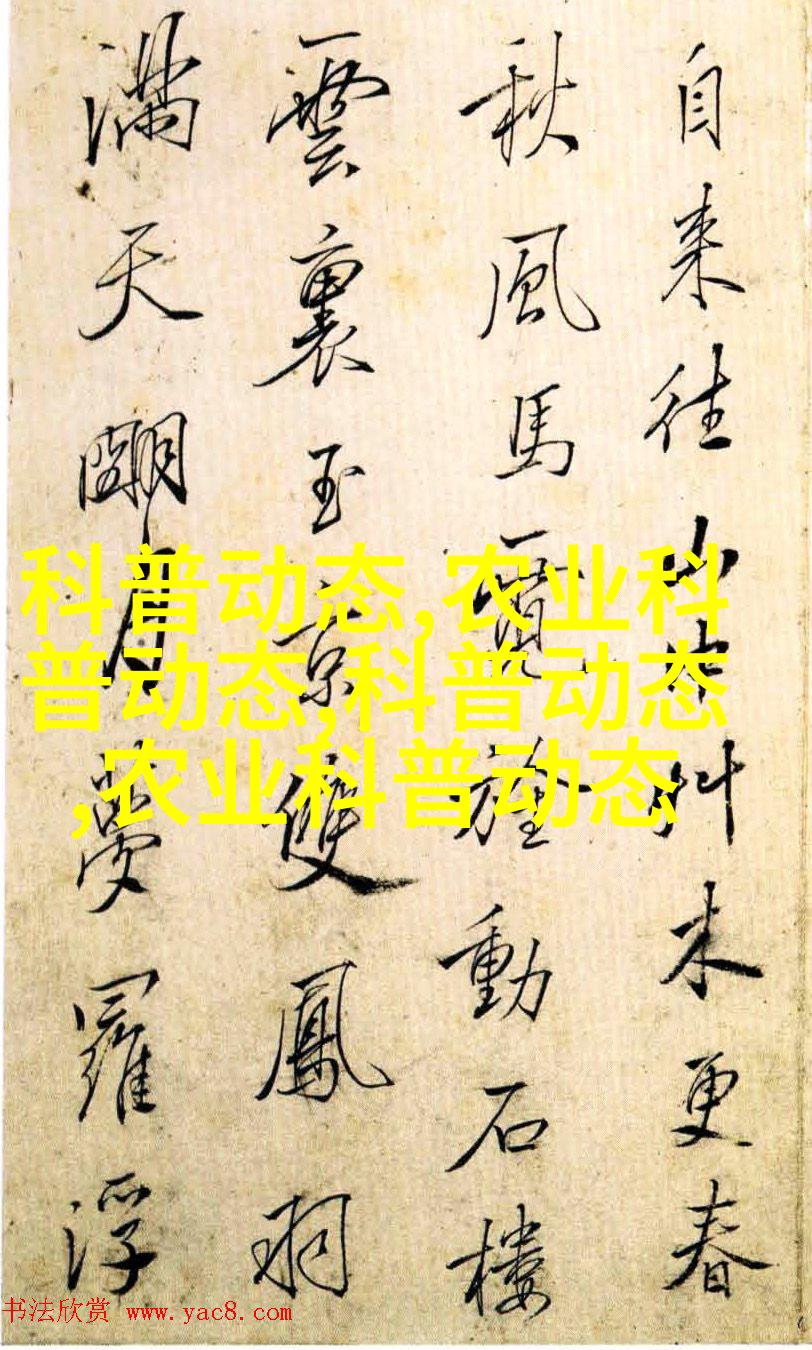 自来往山中艸木更春
秋風馬旌動石樓
雲裏玉京雙鳳羽
滿天朙月夢羅浮
科普动态,农业科
普动态,科普动态
,农业科普动态
书法欣赏 www.yac8.com